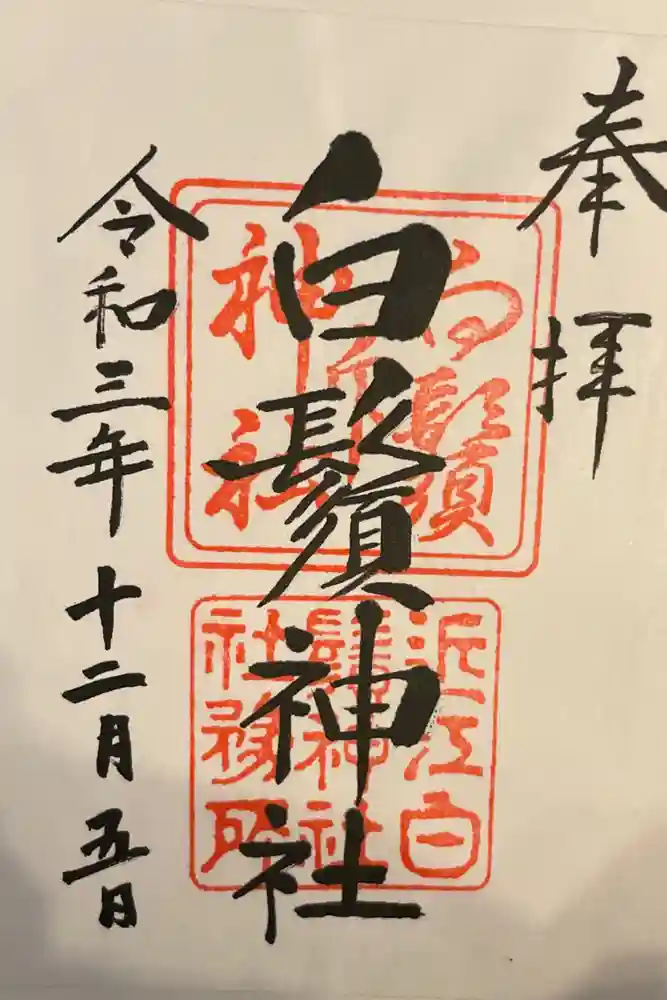 奉拝
白鬚神社
令和三年十二月五日
白鬚
神社
近江白
鬚神社
社務所